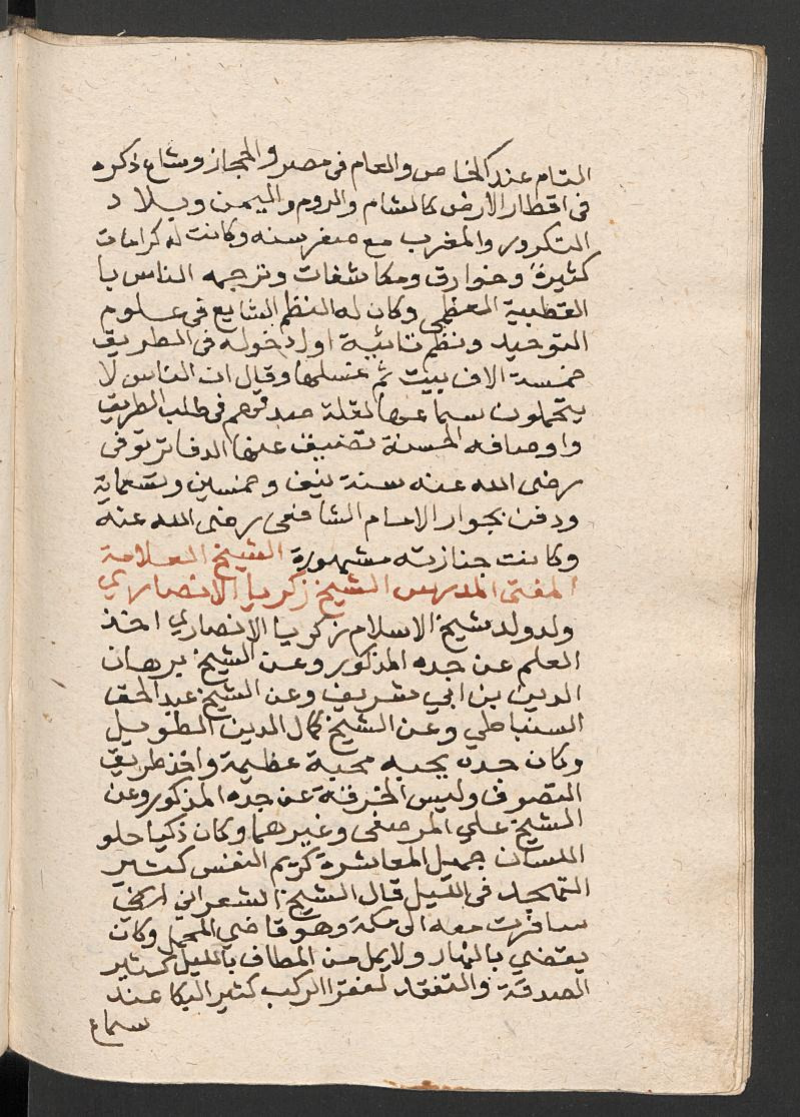 التام عند الخاص والعام في مصر والحجاز وشاع ذكره
في اقطار الارض كالشام والروم واليمن وبلاد
التكرور والمغرب مع صغر سنه وكانت له كرامات
كثيرة وخوارق ومكاشفات وترجمه الناس با
لقطبية العظمى وكان له النظم الشايع في علوم
التوحيد ونظم تائية اول دخوله في الطريق
خمسة الاف بيت ثم غسلها وقال ان الناس لا
يتحملون سماعها لقلة صدقهم في طلب الطريق
واوصافه الحسنة تضيق عنها الدفاتر توفى
رضى الله عنه سنة نيف وخمسين وتسعماية
ودفن بجوار الامام الشافعى رضى الله عنه
وكانت جنازته مشهورة الشيخ العلامة
المفتى المدرس الشيخ زكريا الانصاري
ولد ولد شيخ الاسلام زكريا الانصاري اخذ
العلم عن جده المذكور وعن الشيخ برهان
الدين بن ابي شريف وعن الشيخ عبد الحق
السنباطي وعن الشيخ كمال الدين الطويل
وكان جده يحبه محبة عظيمة واخذ طريق
التصوف ولبس الخرقة عن جده المذكور وعن
الشيخ علي المرصفى وغيرهما وكان ذكيا حلو
اللسان جميل المعاشرة كريم النفس كثير
التهجد في الليل قال الشيخ الشعراني
سافرت معه الى مكة وهو قاضي المحمل وكان
يقضي بالنهار ولا يمل من المطاف بالليل كثير
الصدقة والتفقد لفقرا الركب كثير البكا عند
سماع